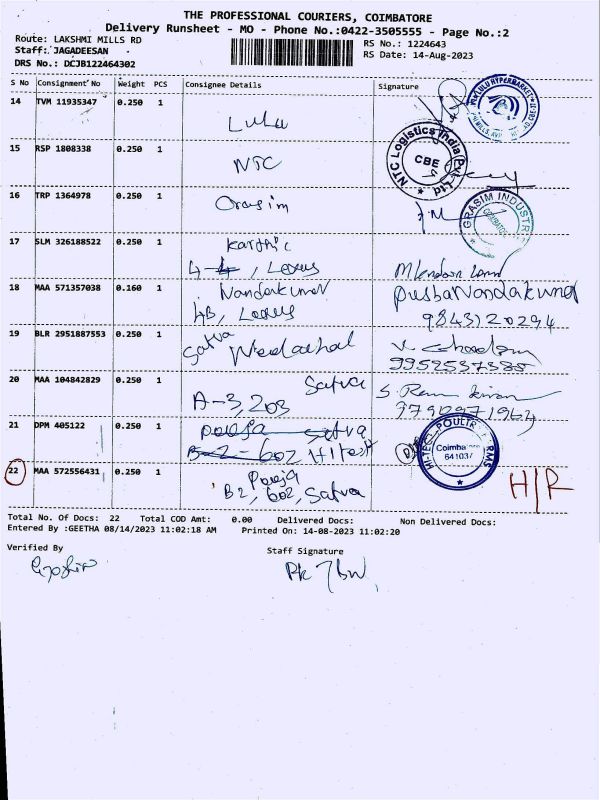 THE PROFESSIONAL COURIERS, COIMBATORE
Delivery Runsheet - MO - Phone No.:0422-3505555 - Page No.:2
Route: LAKSHMI MILLS RD
Staff: JAGADEESAN
DRS No.: DCJB122464302
RS No.: 1224643
RS Date: 14-Aug-2023
S No Consignment No Weight PCS Consignee Details Signature
14 TVM 11935347 0.250 1
Lulu
LULU HYPERMARKET
15 RSP 1808338 0.250 1
NTC
NTC Logistics India (Pvt) Ltd
CBE
16 TRP 1364978 0.250 1
Grasim
GRASIM INDUSTR
17 SLM 326188522 0.250 1
Karthic
4-4, Lexus
18 MAA 571357038 0.160 1
Nandakumar
4B, Lexus
PusbaNandakumar
9843120294
19 BLR 2951887553 0.250 1
Satva
9952537385
20 MAA 104842829 0.250 1
Satva
A-3, 203
S. Ram kiran
21 DPM 405122 0.250 1
Pooja Satva
B-2-602 Hitech
HI-TECH POULTRY FARMS
Coimbatore
641037
22 MAA 572556431 0.250 1
Pooja
B2, 602, Satva
H/R
Total No. Of Docs: 22 Total COD Amt: 0.00 Delivered Docs: Non Delivered Docs:
Entered By :GEETHA 08/14/2023 11:02:18 AM Printed On: 14-08-2023 11:02:20
Verified By
Staff Signature